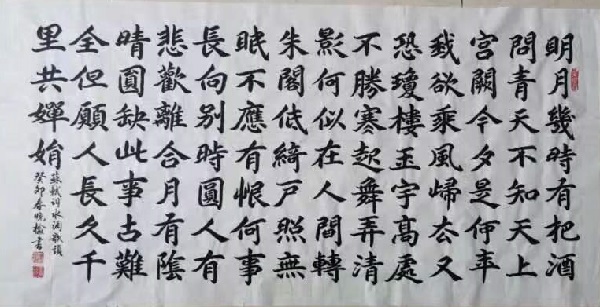 明月幾時有把酒
問青天不知天上
宮闕今夕是何年
我欲乘風歸去又
恐瓊樓玉宇高處
不勝寒起舞弄清
影何似在人間轉
朱閣低綺戶照無
眠不應有恨何事
長向別時圓人有
悲歡離合月有陰
晴圓缺此事古難
全但願人長久千
里共嬋娟
蘇軾詞水調歌頭
癸卯春曉書